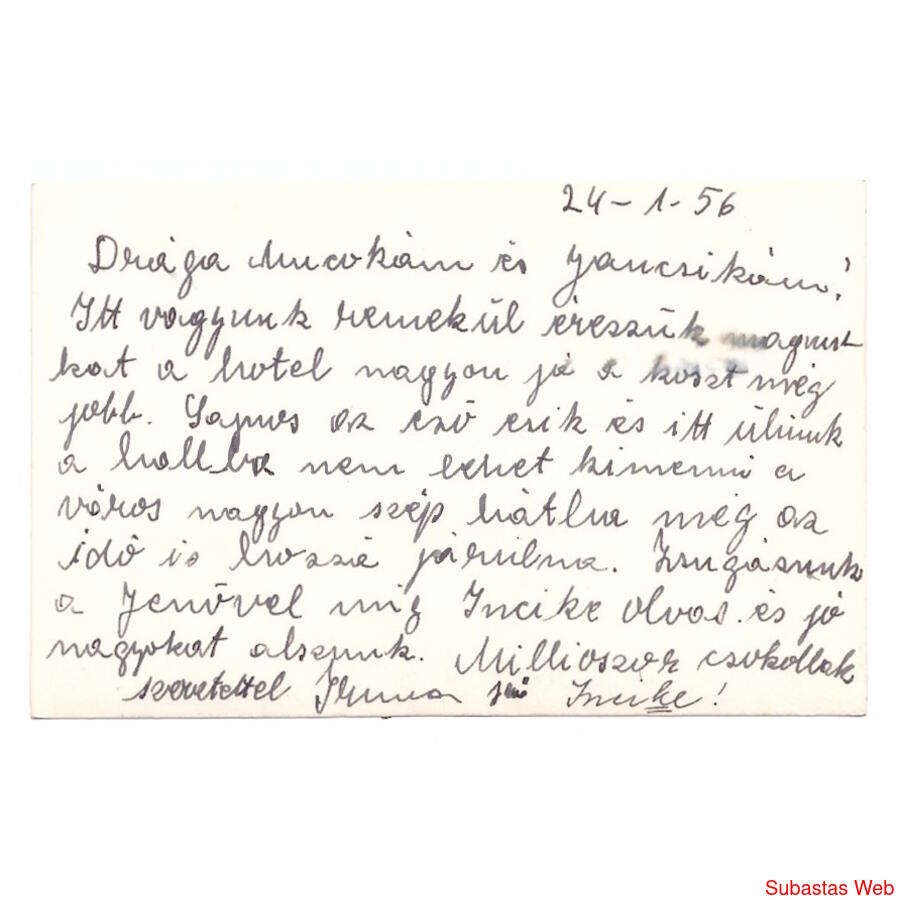 24-1-56
Drága Mucokám és Jancsikám!
Itt vagyunk remekül érezzük magun-
kat a hotel nagyon jó a koszt még
jobb. Sajnos az eső esik és itt ülünk
a hallba nem lehet kimenni a
város nagyon szép hátha még az
idő is hozzá járulna. Zsugázunk
a Jenővel mig Incike olvas. és jó
nagyokat alszunk. Milliószor csokollak
szeretettel Jenő Incike!
Subastas Web